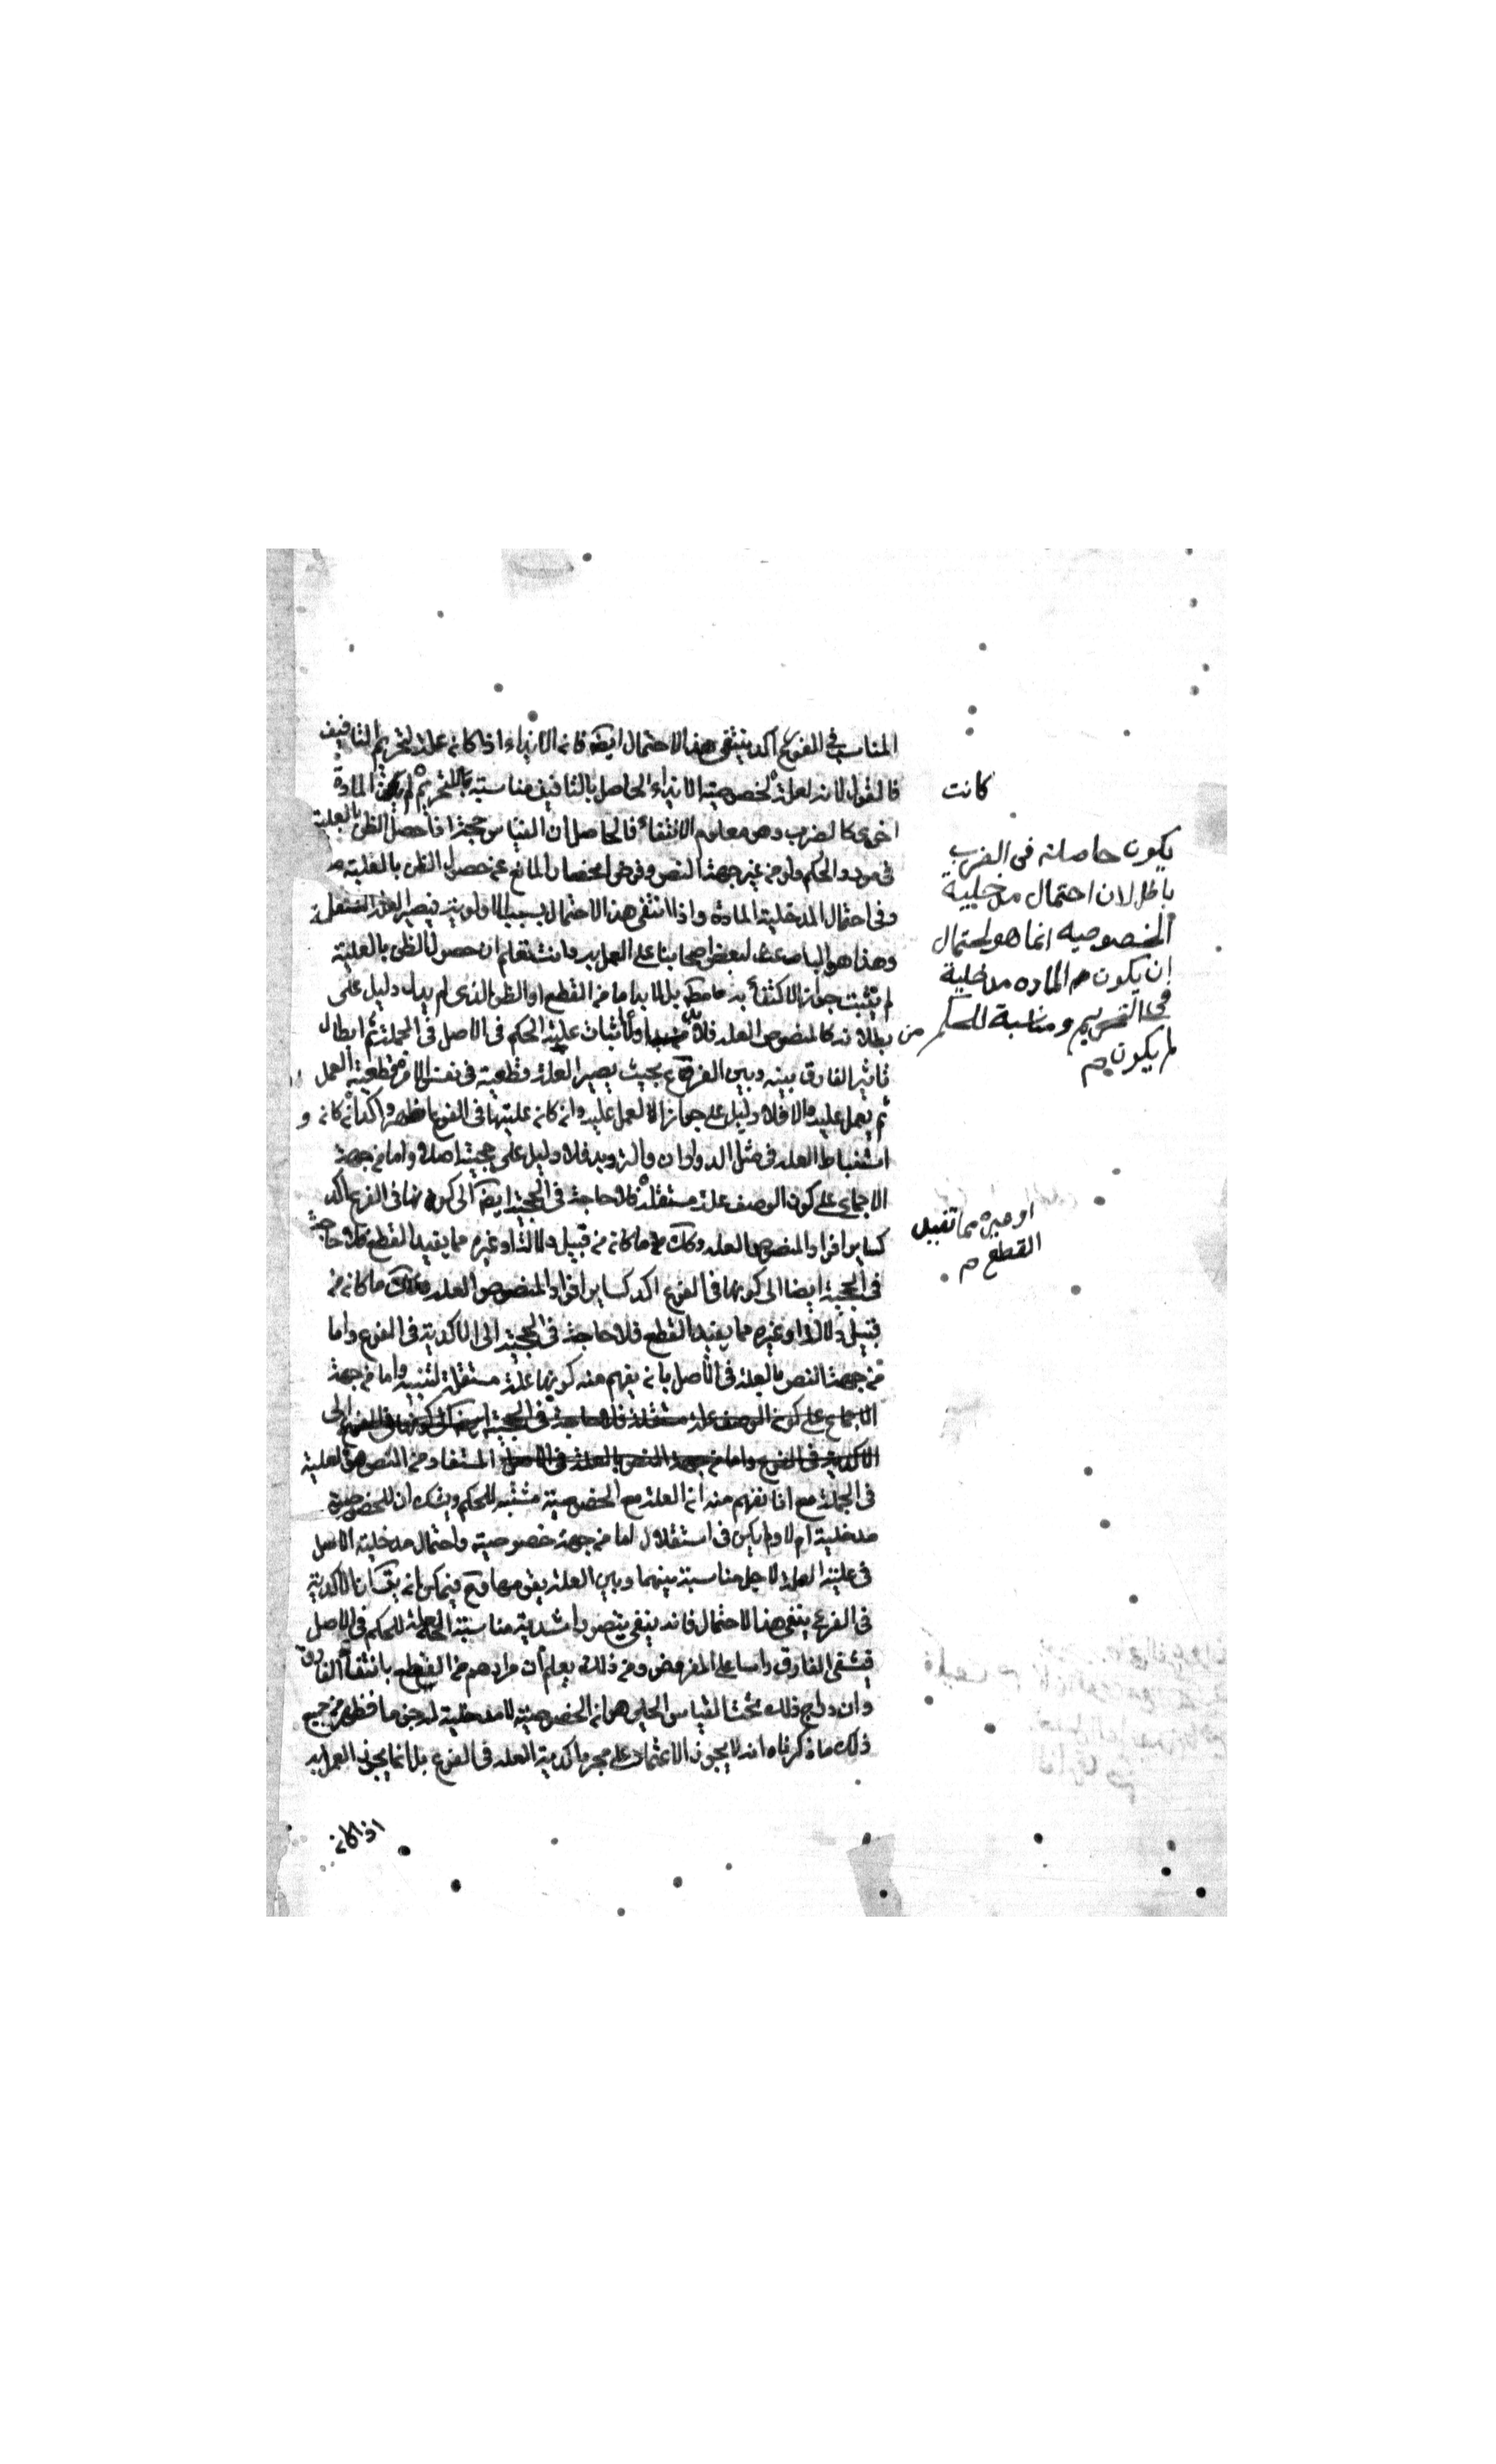 المناسب في الفرع اكد ينتفى هذا الاحتمال ايضا فانه الايذاء اذا كانه علة لتحريم التافيف
فالقول لانه لعله لخصوصية الايذاء الحاصل بالتافيف مناسبته بالتحريم لم يكن المادة
اخرى كالضرب وهو معلوم الانتفاء فالحاصل ان القياس حجة اذا حصل الظن بالعلية
فى مورد الحكم ولو من غير جهة النص وفرض انحصار المانع عن حصول الظن بالعلية
وفى احتمال المدخلية المادة واذا انتفى هذا الاحتمال بسبب الاولوية فيصير العلة المستقلة
وهذا هو الباعث لبعض اصحابنا على العمل به وانت تعلم ان حصول الظن بالعلية
لم يثبت جواز الاكتفاء به بل لابد اما من القطع او الظن الذى لم يدل دليل على
بطلانه كالمنصوص العلة فلا اولا اثبات علية الحكم فى الاصل فى الجملة ثم ابطال
تاثير الفارق بينه وبين الفرع بحيث يصير العلة قطعية فى نفس الامر قطعية العمل
ثم يعمل عليه والا فلا دليل على جواز العمل عليه وانه كانه عليتها فى الفرع اظهر واكد كانه و
استنباط العلة فى مثل الدوران والترديد فلا دليل على حجيته اصلا واما من جهة
الاجماع على كون الوصف علة مستقلة فلا حاجة فى الحجية ايضا الى كونها فى الفرع اكد
كساير افراد المنصوص العلة وكك ما كانه من قبيل دلالة او غيره مما يفيد القطع فلا حاجة
فى الحجية ايضا الى كونها فى الفرع اكد كساير افراد المنصوص العلة وكك ما كانه من
قبيل دلالة او غيره مما يفيد القطع فلا حاجة فى الحجية الى الاكدية فى الفرع واما
من جهة النص بالعلة فى الاصل بانه يفهم منه كونها علة مستقلة واما من جهة
الاجماع على كونه الوصف علة مستقلة فلا حاجة فى الحجية ايضا الى كونها فى الفرع الى
الاكدية فى الفرع واما من جهة النص بالعلة فى الاصل المستفاد من النص هو العلية
فى الجملة مع انا نفهم منه انه العلة مع الخصوصية مثبته للحكم ويشك ان للخصوصية
مدخلية ام لا ولم يكن فى استقلال لها من جهة خصوصيته واحتمال مدخلية الاصل
فى علية العلة لاجل مناسبة بينهما وبين العلة فيمكن انه يق ان الاكدية
فى الفرع ينفى هذا الاحتمال فانه ينفى اشدية مناسبة العلة للحكم فى الاصل
فينتفى الفارق راسا على المفروض ومن ذلك يعلم ان مرادهم من القطع بانتفاء الفارق
وان دراج ذلك تحت القياس الجلى هو انه الخصوصية لا مدخلية له فظهر من جميع
ذلك ما ذكرناه انه لا يجوز الاعتماد على مجرد اكدية العلة فى الفرع بل انما يجوز العمل به
اذا كانه
كانت
يكون حاصلة فى الضرب
باطل لان احتمال مدخلية
الخصوصيه انما هو لاحتمال
ان يكون للماده مدخلية
فى التحريم ومناسبة للحكم من
لم يكون م
او غيره مما تفيد
القطع م